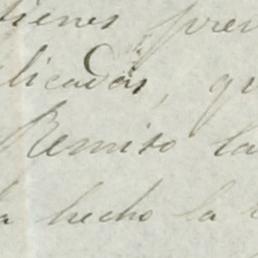 tienes pre
licadas, qu
Remito la
a hecho la